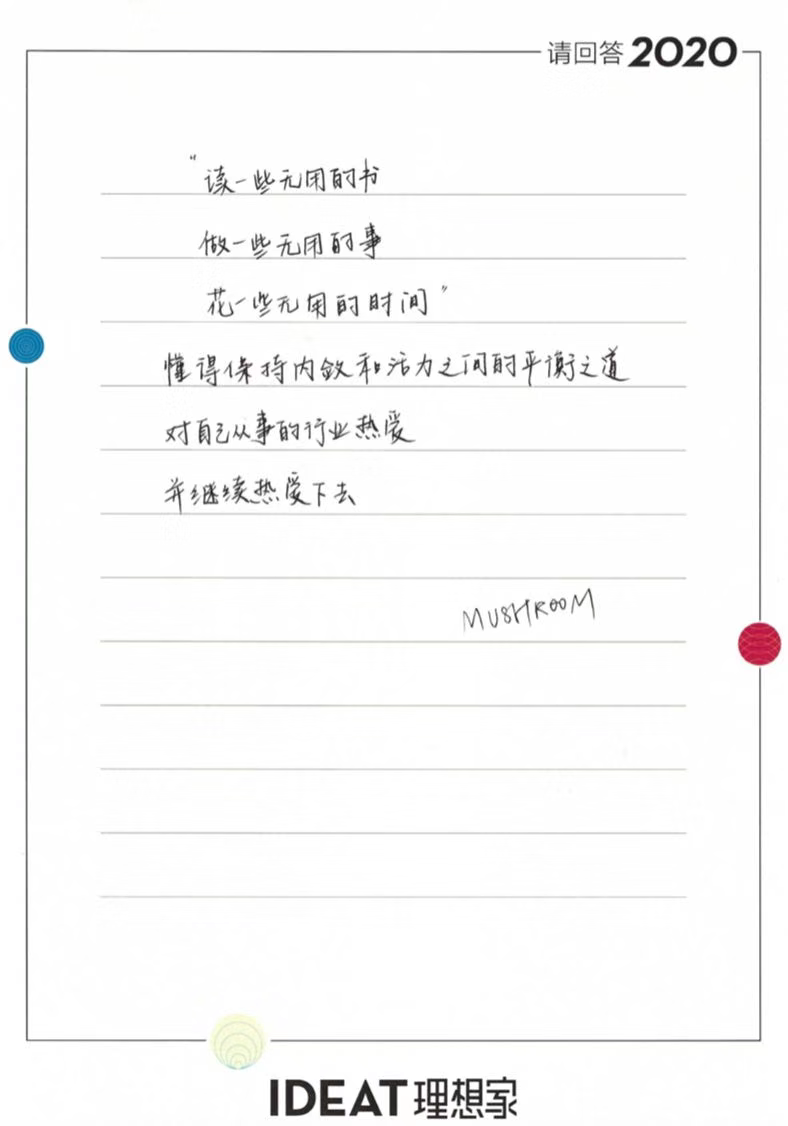 请回答2020
“读一些无用的书
做一些无用的事
花一些无用的时间”
懂得保持内敛和活力之间的平衡之道
对自己从事的行业热爱
并继续热爱下去
MUSHROOM
IDEAT理想家